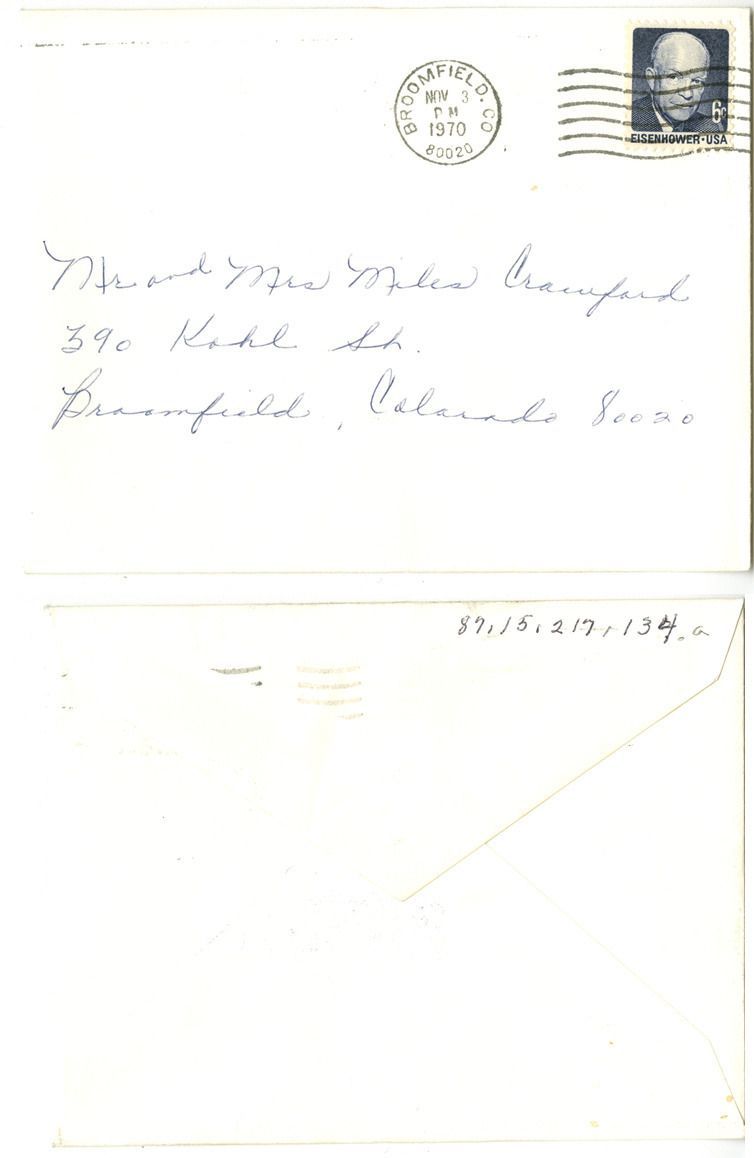 BROOMFIELD. CO
NOV 3
PM
1970
80020
6c
EISENHOWER·USA
Mr and Mrs Miles Crawford
390 Kohl St.
Broomfield, Colorado 80020
87.15.217.134.a